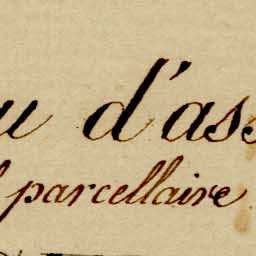 u d'ass
l parcellaire